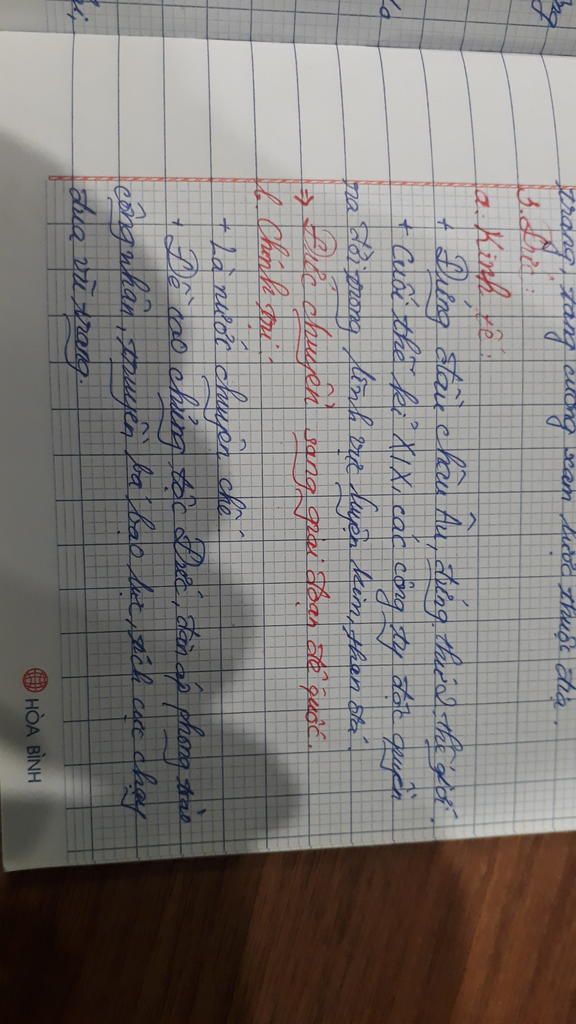 trang, tăng cường xâm lược thuộc địa.
3. Đức:
a. Kinh tế:
+ Đứng đầu châu Âu, đứng thứ 2 thế giới.
+ Cuối thế kỉ XIX, các công ty độc quyền
ra đời trong lĩnh vực luyện kim, than đá.
=> Đức chuyển sang giai đoạn đế quốc.
b. Chính trị:
+ Là nước chuyên chế
+ Đề cao chủng tộc Đức, đàn áp phong trào
công nhân, truyền bá bạo lực, tích cực chạy
đua vũ trang.
HÒA BÌNH